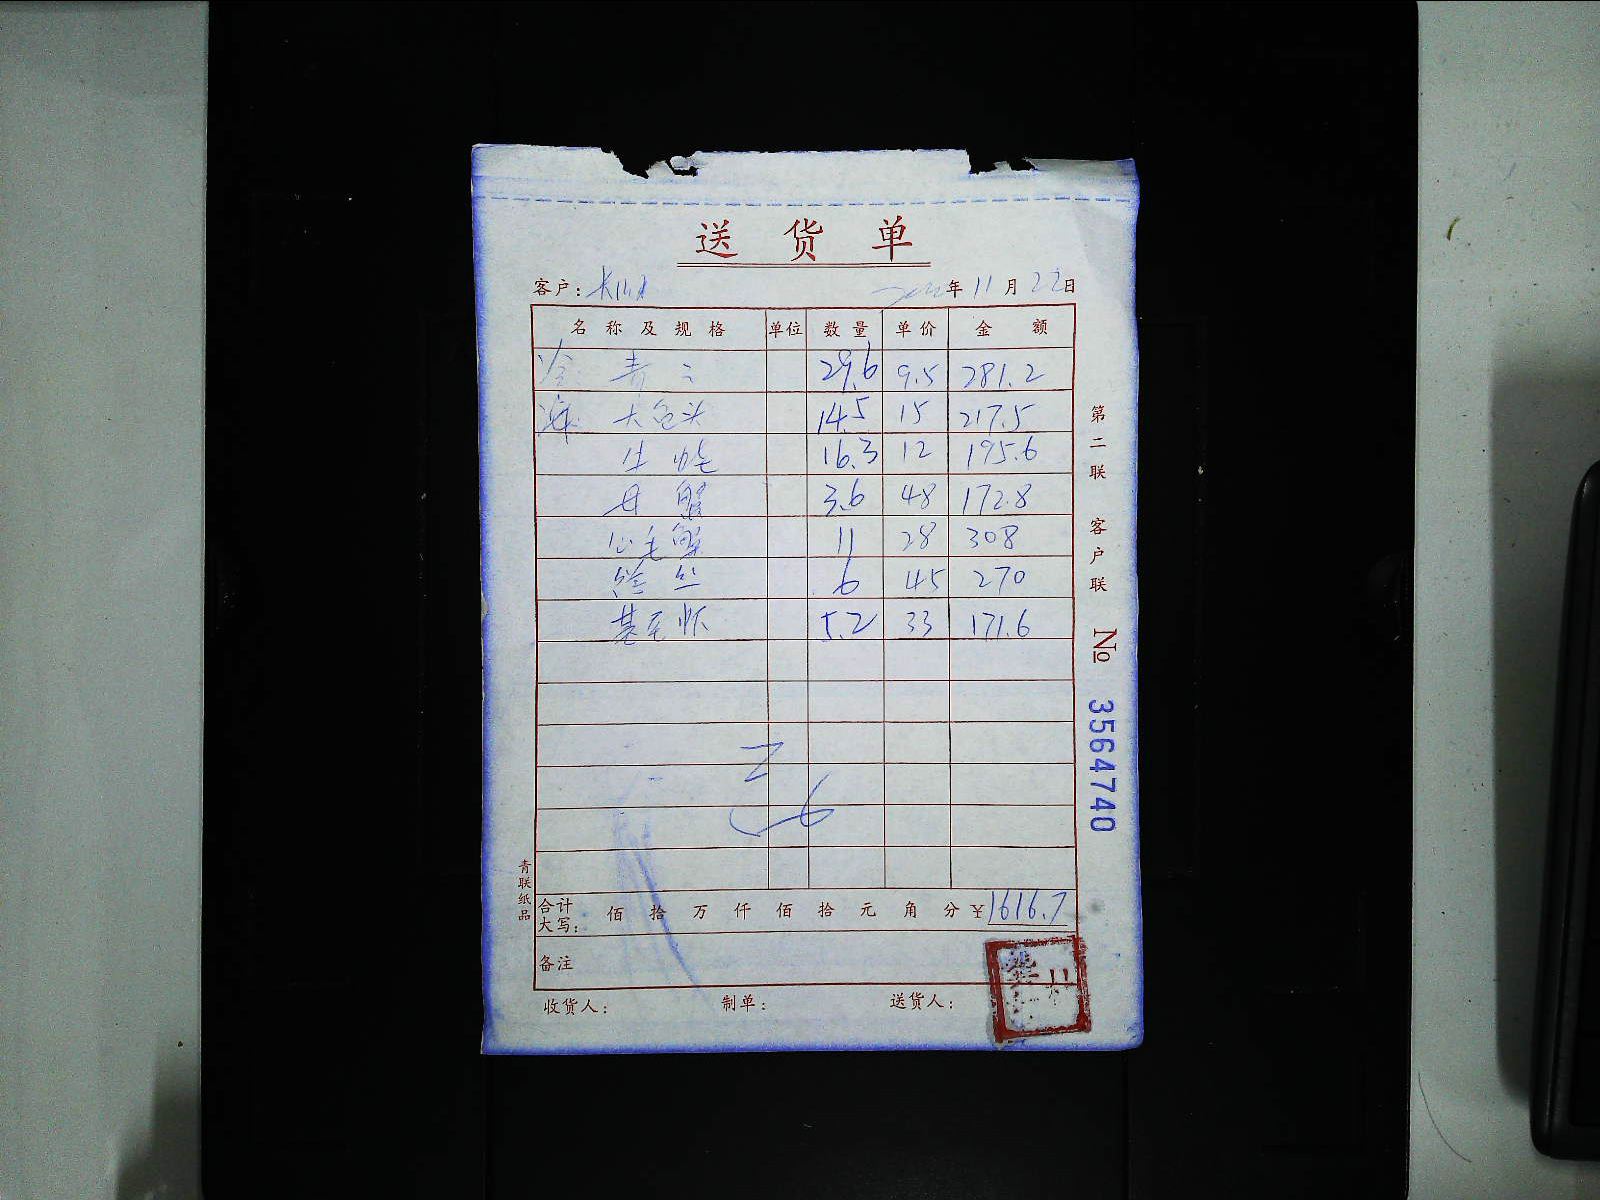 送货单
客户: 年 11 月 22 日
名称及规格 单位 数量 单价 金额
29.6 9.5 281.2
大包头 14.5 15 217.5
生蚝 16.3 12 195.6
母蟹 3.6 48 172.8
公毛蟹 11 28 308
6 45 270
基围虾 5.2 33 171.6
合计大写: 佰 拾 万 仟 佰 拾 元 角 分 ¥1616.7
备注
收货人: 制单: 送货人:
第二联 客户联 No 3564740
青联纸品